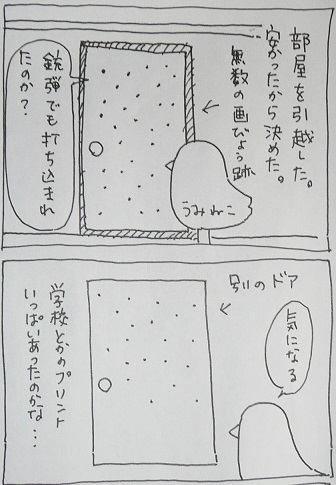 部屋を引越した。
安かったから決めた。
無数の画びょう跡
うみねこ
銃弾でも打ち込まれ
たのか?
気になる
別のドア
学校とかのプリント
いっぱいあったのかな・・・